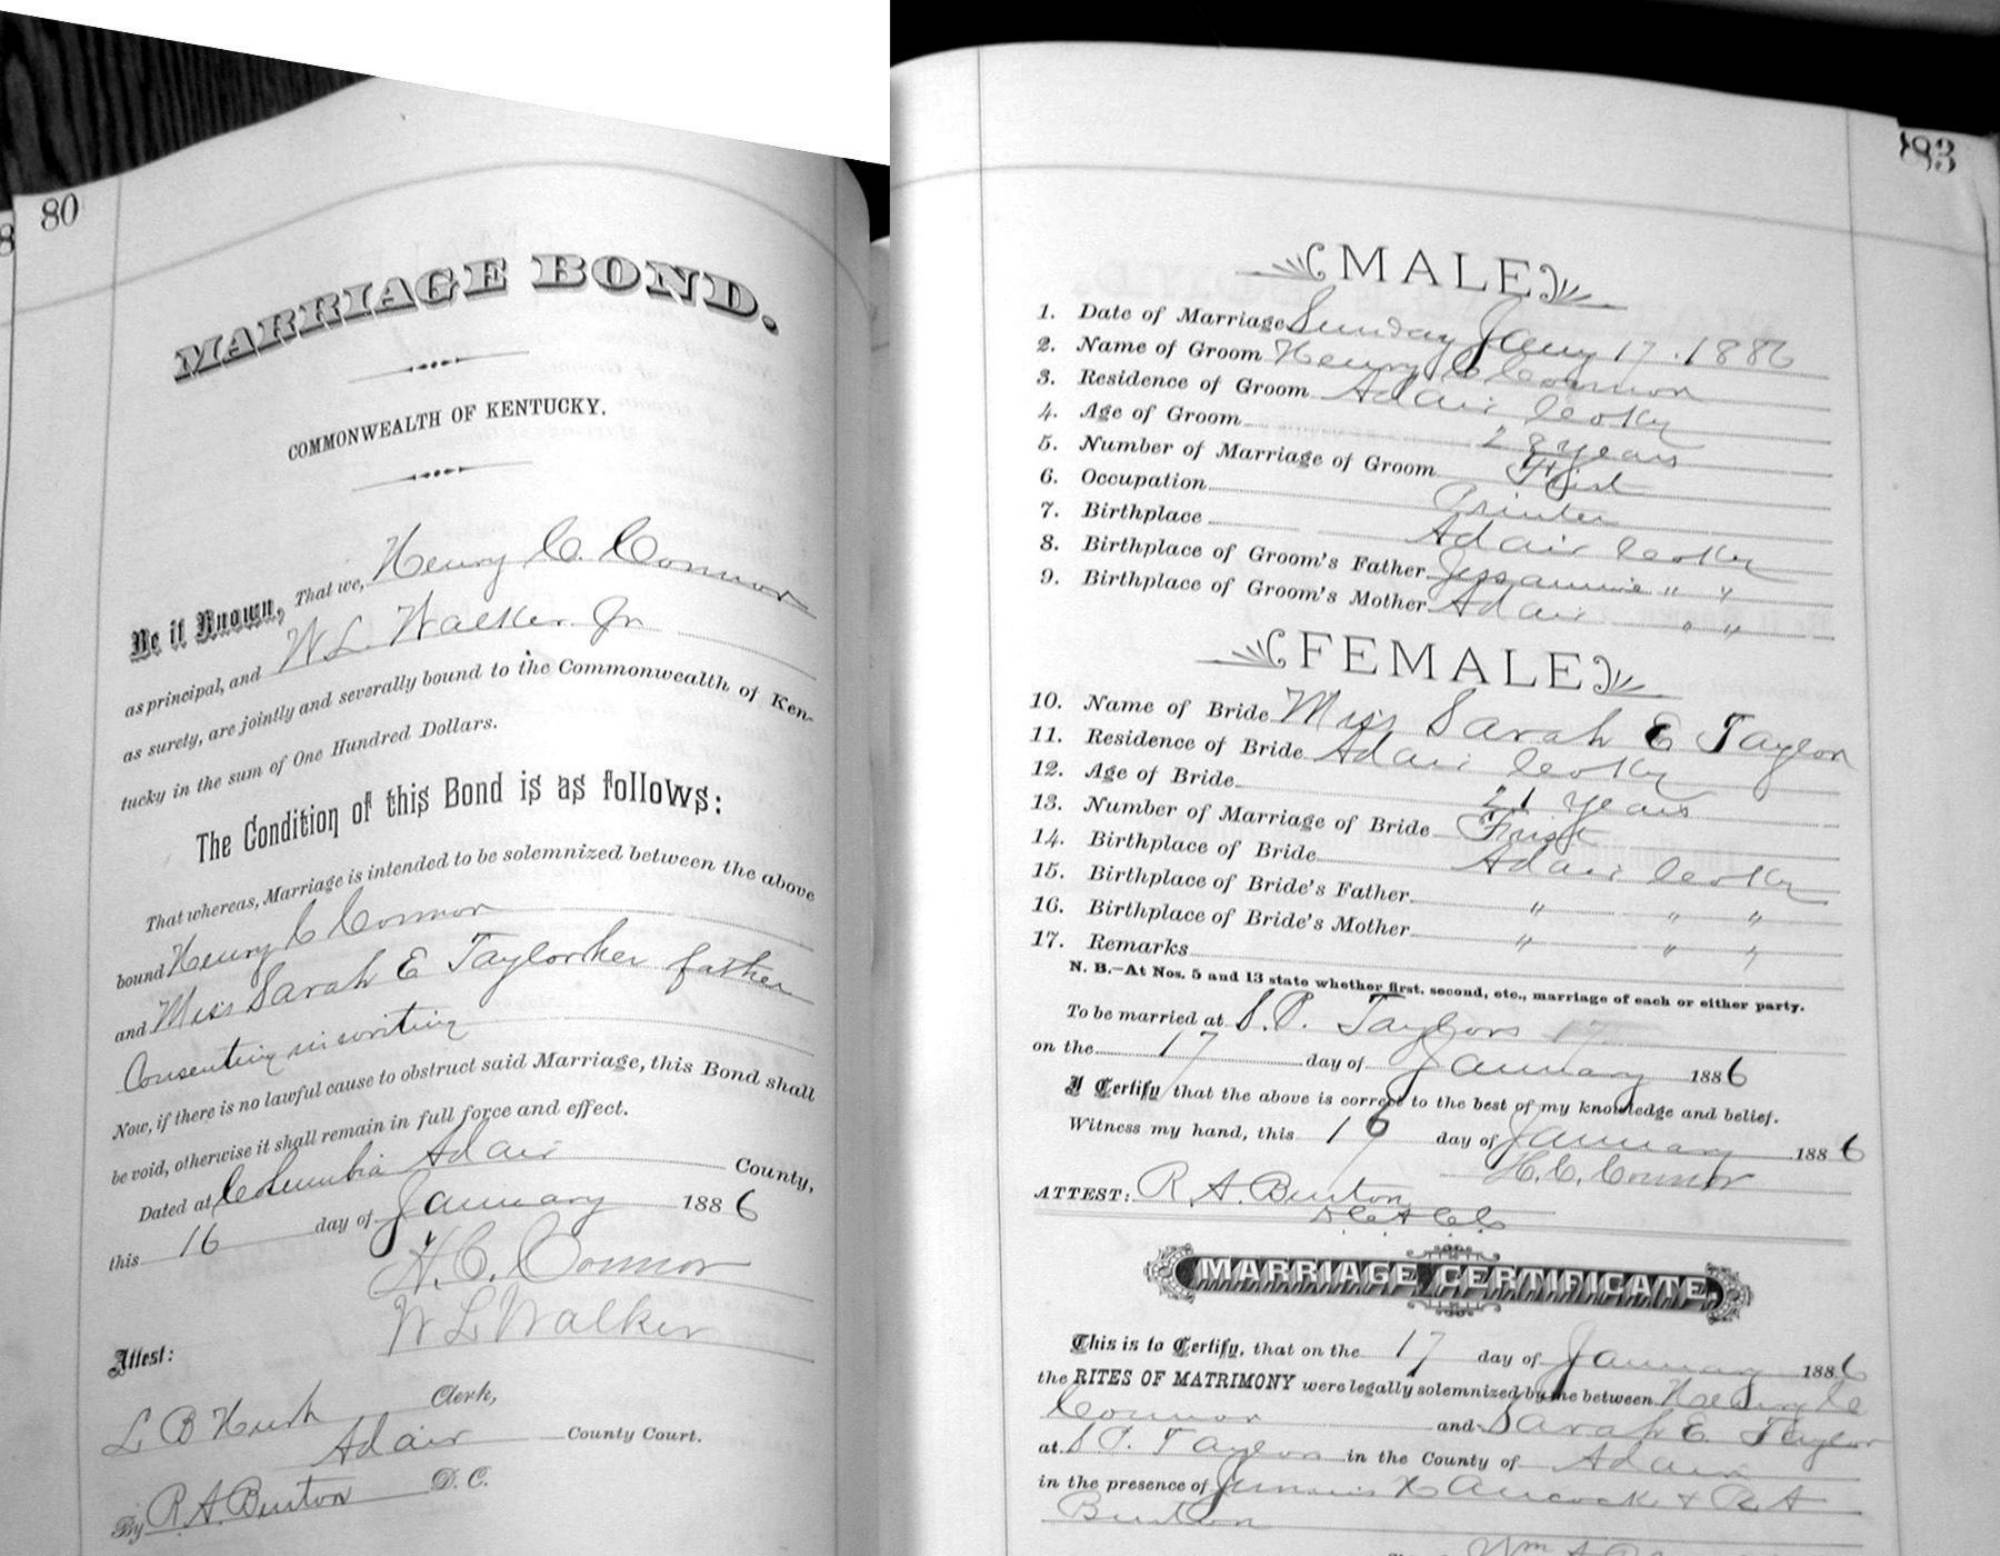 80
MARRIAGE BOND.
COMMONWEALTH OF KENTUCKY.
Be it Known, That we, Henry C. Connor
as principal, and W. L. Walker Jr
as surety, are jointly and severally bound to the Commonwealth of Ken-
tucky in the sum of One Hundred Dollars.
The Condition of this Bond is as follows:
That whereas, Marriage is intended to be solemnized between the above
bound Henry C Connor
and Miss Sarah E Taylor her father
Consenting in writing
Now, if there is no lawful cause to obstruct said Marriage, this Bond shall
be void, otherwise it shall remain in full force and effect.
Dated at Columbia Adair County,
this 16 day of January 1886
H. C. Connor
W L Walker
Attest:
L B Hurt Clerk,
Adair County Court.
By R. A. Burton D. C.
183
MALE
1. Date of Marriage Sunday Jany 17. 1886
2. Name of Groom Henry C Connor
3. Residence of Groom Adair Co Ky
4. Age of Groom 28 years
5. Number of Marriage of Groom First
6. Occupation Printer
7. Birthplace Adair Co Ky
8. Birthplace of Groom's Father Jessamine " "
9. Birthplace of Groom's Mother Adair " "
FEMALE
10. Name of Bride Miss Sarah E Taylor
11. Residence of Bride Adair Co Ky
12. Age of Bride 21 years
13. Number of Marriage of Bride First
14. Birthplace of Bride Adair Co Ky
15. Birthplace of Bride's Father " " "
16. Birthplace of Bride's Mother " " "
17. Remarks
N. B.—At Nos. 5 and 13 state whether first, second, etc., marriage of each or either party.
To be married at S. P. Taylors 17
on the 17 day of January 1886
I Certify that the above is correct to the best of my knowledge and belief.
Witness my hand, this 16 day of January 1886
H. C. Connor
ATTEST: R A. Burton
MARRIAGE CERTIFICATE.
This is to Certify, that on the 17 day of January 1886
the RITES OF MATRIMONY were legally solemnized by me between Henry C
Connor and Sarah E. Taylor
at S P. Taylors in the County of Adair
in the presence of Junius Hancock & R A
Burton
Wm